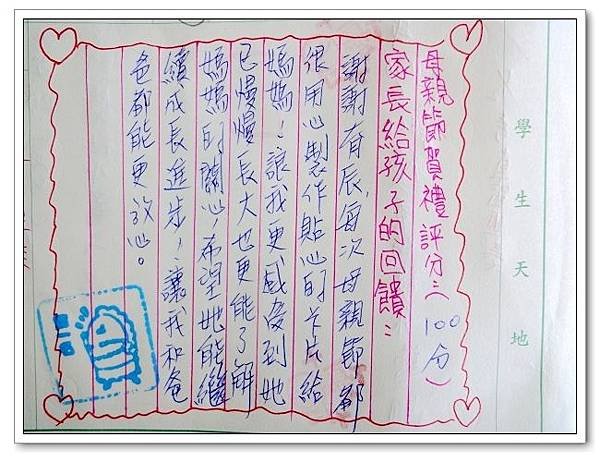 學生天地
母親節賀禮評分：（100分）
家長給孩子的回饋：
謝謝有辰，每次母親節都
很用心製作貼心的卡片給
媽媽！讓我更感受到她
已慢慢長大也更能了解
媽媽的關心！希望她能繼
續成長進步，讓我和爸
爸都能更放心。